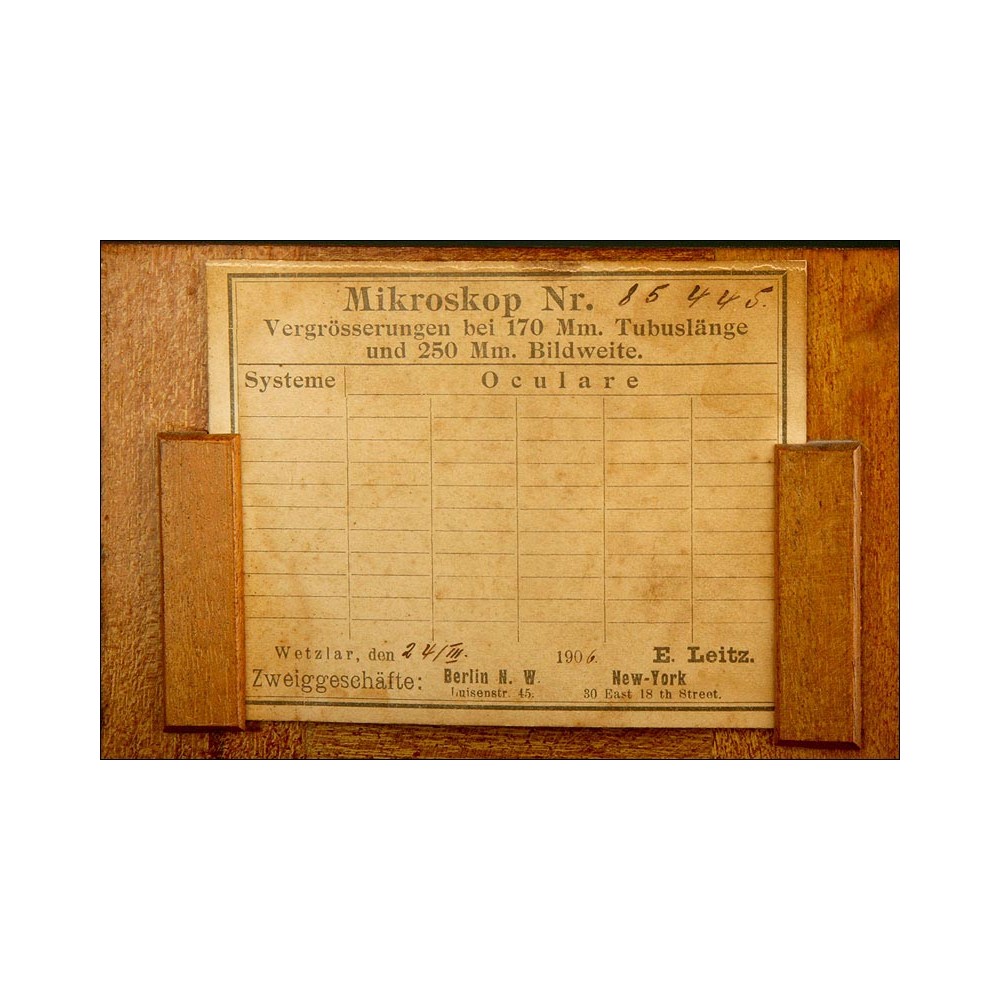 Mikroskop Nr. 85 445.
Vergrösserungen bei 170 Mm. Tubuslänge
und 250 Mm. Bildweite.
Systeme Oculare
Wetzlar, den 24/III. 1906. E. Leitz.
Zweiggeschäfte: Berlin N. W. New-York
Luisenstr. 45. 30 East 18 th Street.